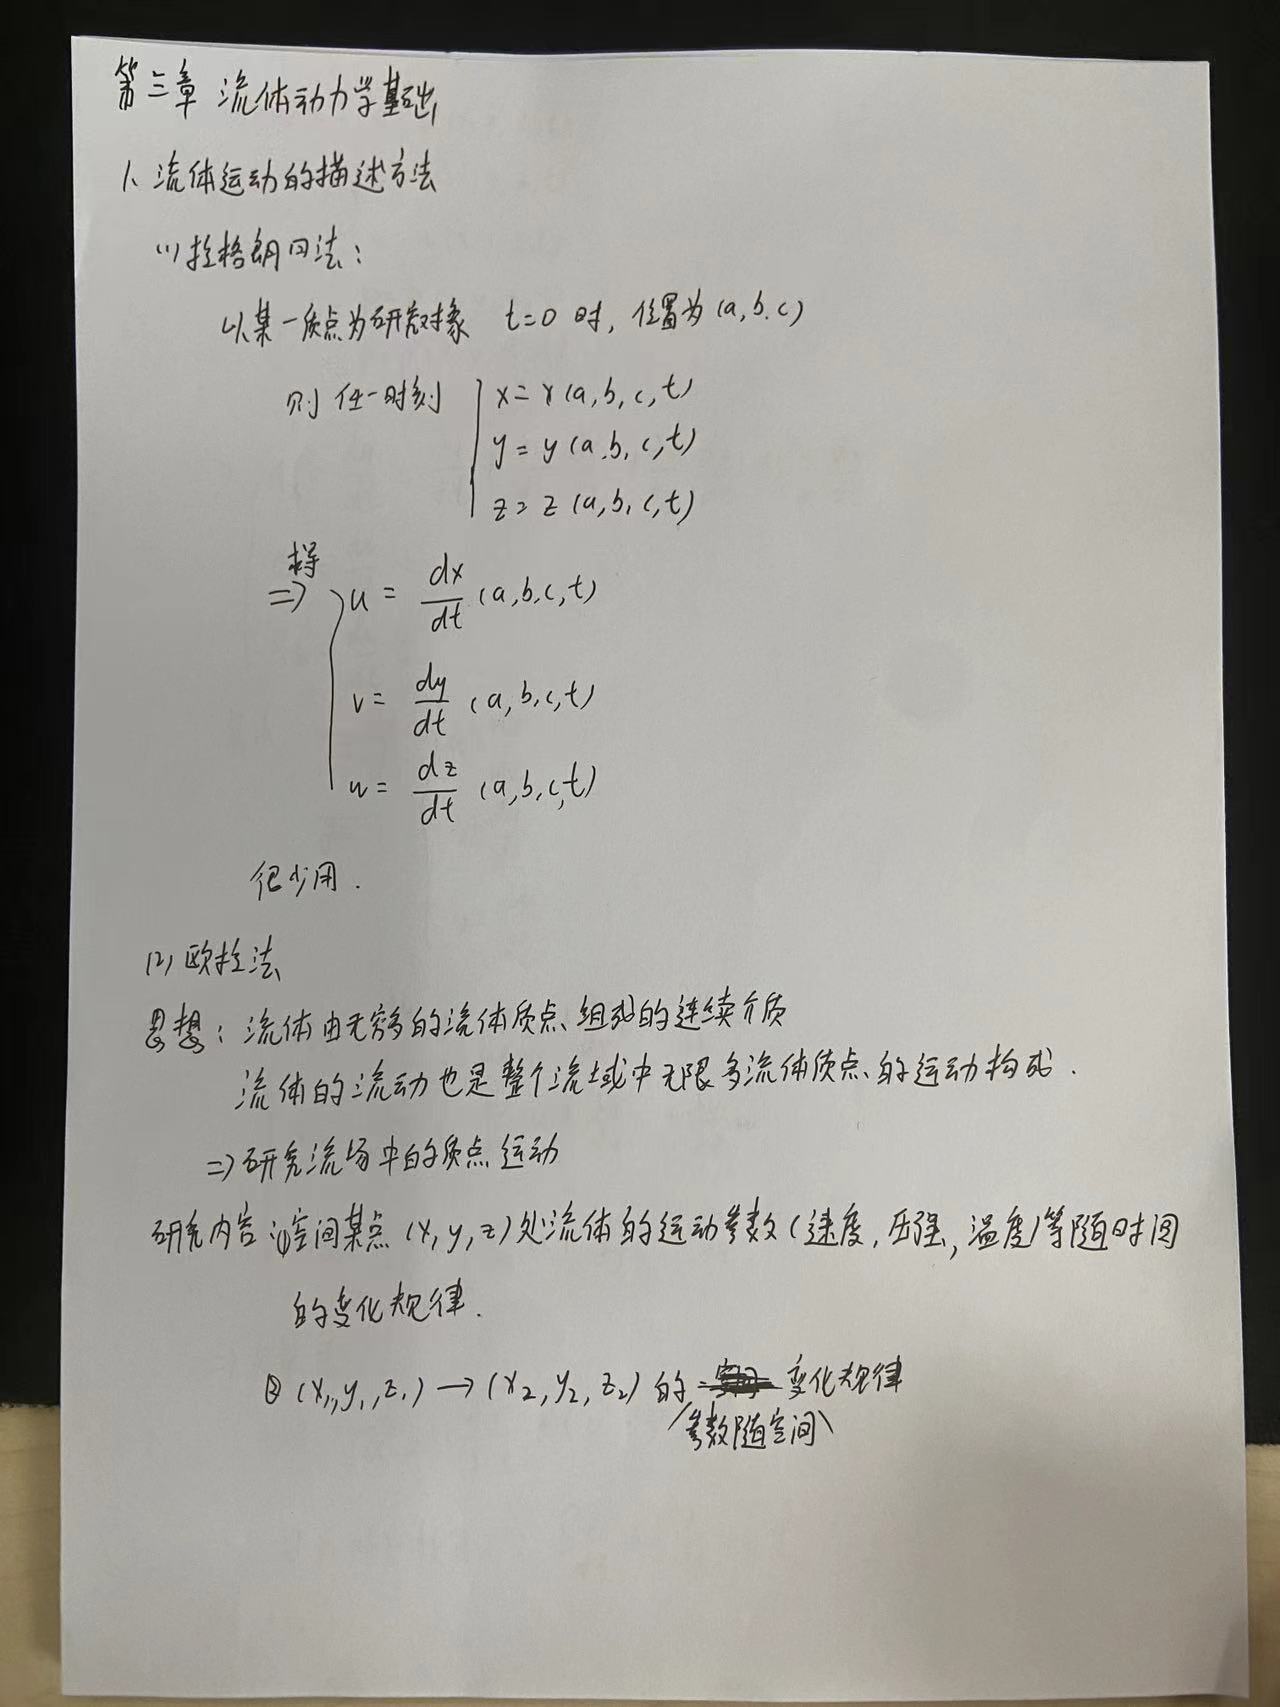 第三章 流体动力学基础
1、流体运动的描述方法
(1) 拉格朗日法：
以某一质点为研究对象 t=0 时，位置为(a,b,c)
则任一时刻 x=x(a,b,c,t)
y=y(a,b,c,t)
z=z(a,b,c,t)
⇒ 得 u = dx/dt (a,b,c,t)
v = dy/dt (a,b,c,t)
w = dz/dt (a,b,c,t)
很少用.
(2) 欧拉法
思想：流体由无穷多的流体质点组成的连续介质
流体的流动也是整个流域中无限多流体质点的运动构成.
⇒研究流场中的质点运动
研究内容：①空间某点 (x,y,z)处流体的运动参数(速度,压强,温度)等随时间
的变化规律.
② (x₁,y₁,z₁)→(x₂,y₂,z₂) 的 变化规律
参数随空间